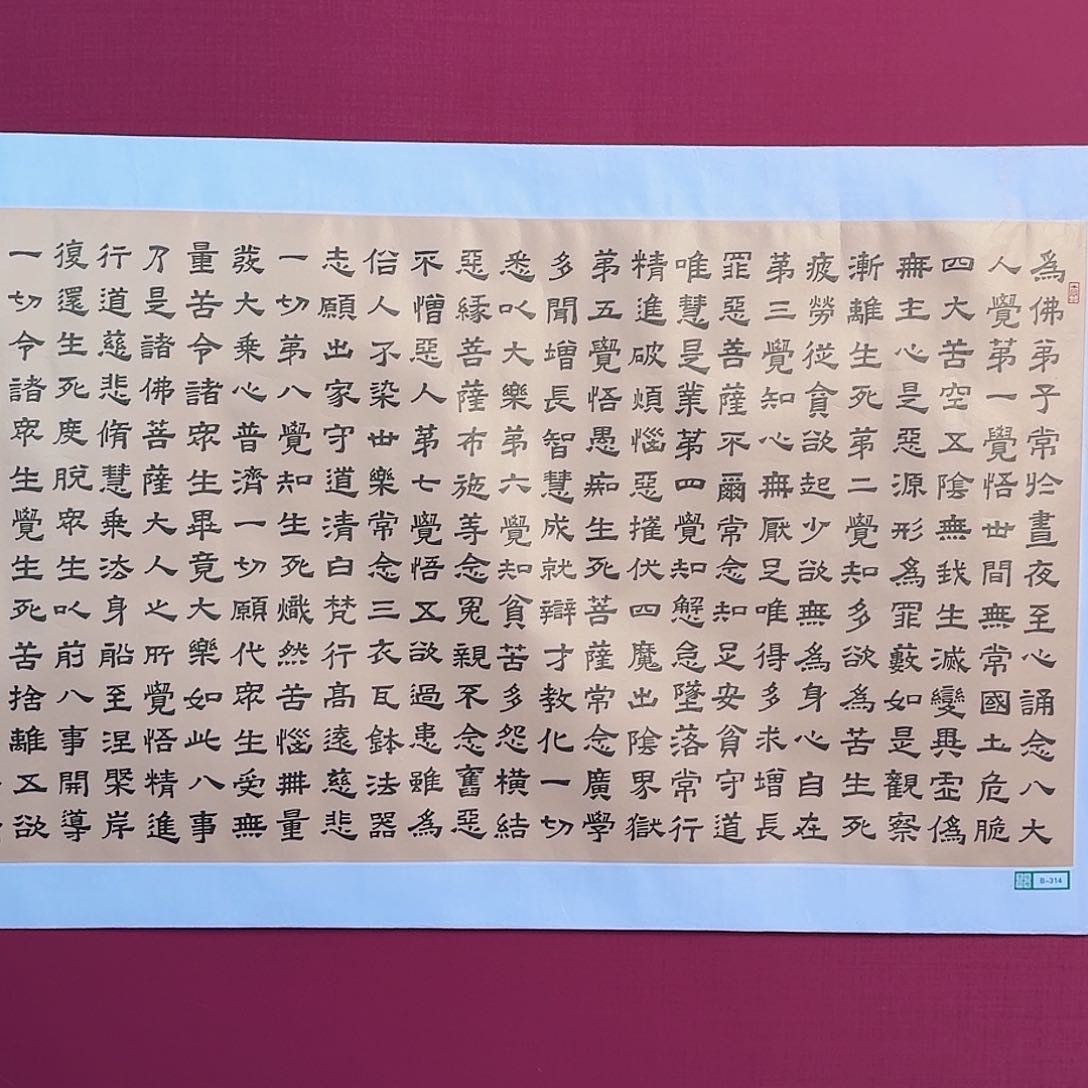 為佛弟子常於晝夜至心誦念八大
人覺第一覺悟世間無常國土危脆
四大苦空五陰無我生滅變異虛偽
無主心是惡源形為罪藪如是觀察
漸離生死第二覺知多欲為苦生死
疲勞從貪欲起少欲無為身心自在
第三覺知心無厭足唯得多求增長
罪惡菩薩不爾常念知足安貧守道
唯慧是業第四覺知懈怠墜落常行
精進破煩惱惡摧伏四魔出陰界獄
第五覺悟愚痴生死菩薩常念廣學
多聞增長智慧成就辯才教化一切
悉以大樂第六覺知貧苦多怨橫結
惡緣菩薩布施等念冤親不念舊惡
不憎惡人第七覺悟五欲過患雖為
俗人不染世樂常念三衣瓦鉢法器
志願出家守道清白梵行高遠慈悲
一切第八覺知生死熾然苦惱無量
發大乘心普濟一切願代眾生受無
量苦令諸眾生畢竟大樂如此八事
乃是諸佛菩薩大人之所覺悟精進
行道慈悲脩慧乘法身船至涅槃岸
復還生死度脫眾生以前八事開導
一切令諸眾生覺生死苦捨離五欲
B-314